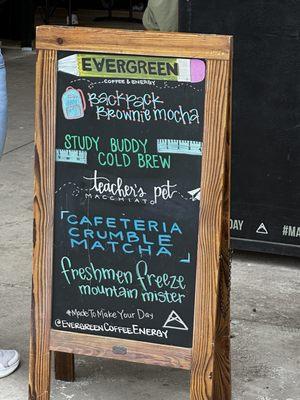 EVERGREEN
COFFEE & ENERGY
Backpack
Brownie mocha
STUDY BUDDY
COLD BREW
Teacher's pet
MACCHIATO
CAFETERIA
CRUMBLE
MATCHA
freshmen freeze
mountain mister
#MadeToMakeYourDay
@EVERGREENCOFFEEENERGY
DAY
#MA